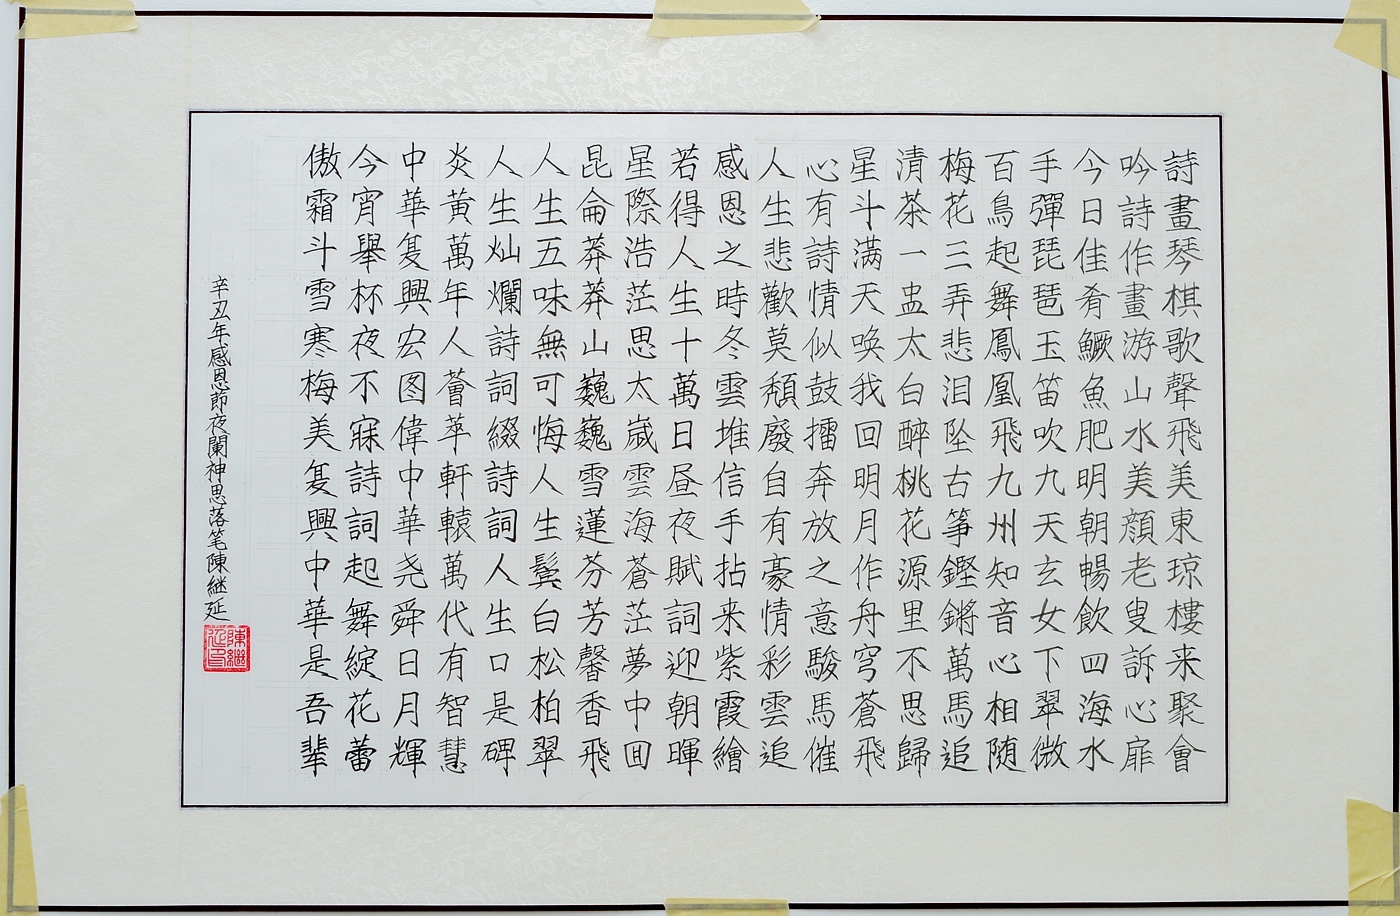 詩畫琴棋歌聲飛美東琼樓来聚會
吟詩作畫游山水美顔老叟訴心扉
今日佳肴鱖魚肥明朝暢飲四海水
手彈琵琶玉笛吹九天玄女下翠微
百鳥起舞鳳凰飛九州知音心相随
梅花三弄悲泪坠古筝鏗鏘萬馬追
清茶一盅太白醉桃花源里不思歸
星斗满天唤我回明月作舟穹蒼飛
心有詩情似鼓擂奔放之意駿馬催
人生悲歡莫頹廢自有豪情彩雲追
感恩之時冬雲堆信手拈来紫霞繪
若得人生十萬日昼夜賦詞迎朝暉
星際浩茫思太嵗雲海蒼茫夢中回
昆侖莽莽山巍巍雪蓮芬芳馨香飛
人生五味無可悔人生鬓白松柏翠
人生灿爛詩詞綴詩詞人生口是碑
炎黃萬年人薈萃軒轅萬代有智慧
中華复興宏图偉中華尧舜日月輝
今宵舉杯夜不寐詩詞起舞綻花蕾
傲霜斗雪寒梅美复興中華是吾輩
辛丑年感恩節夜闌神思落笔陳継延
陳繼延印